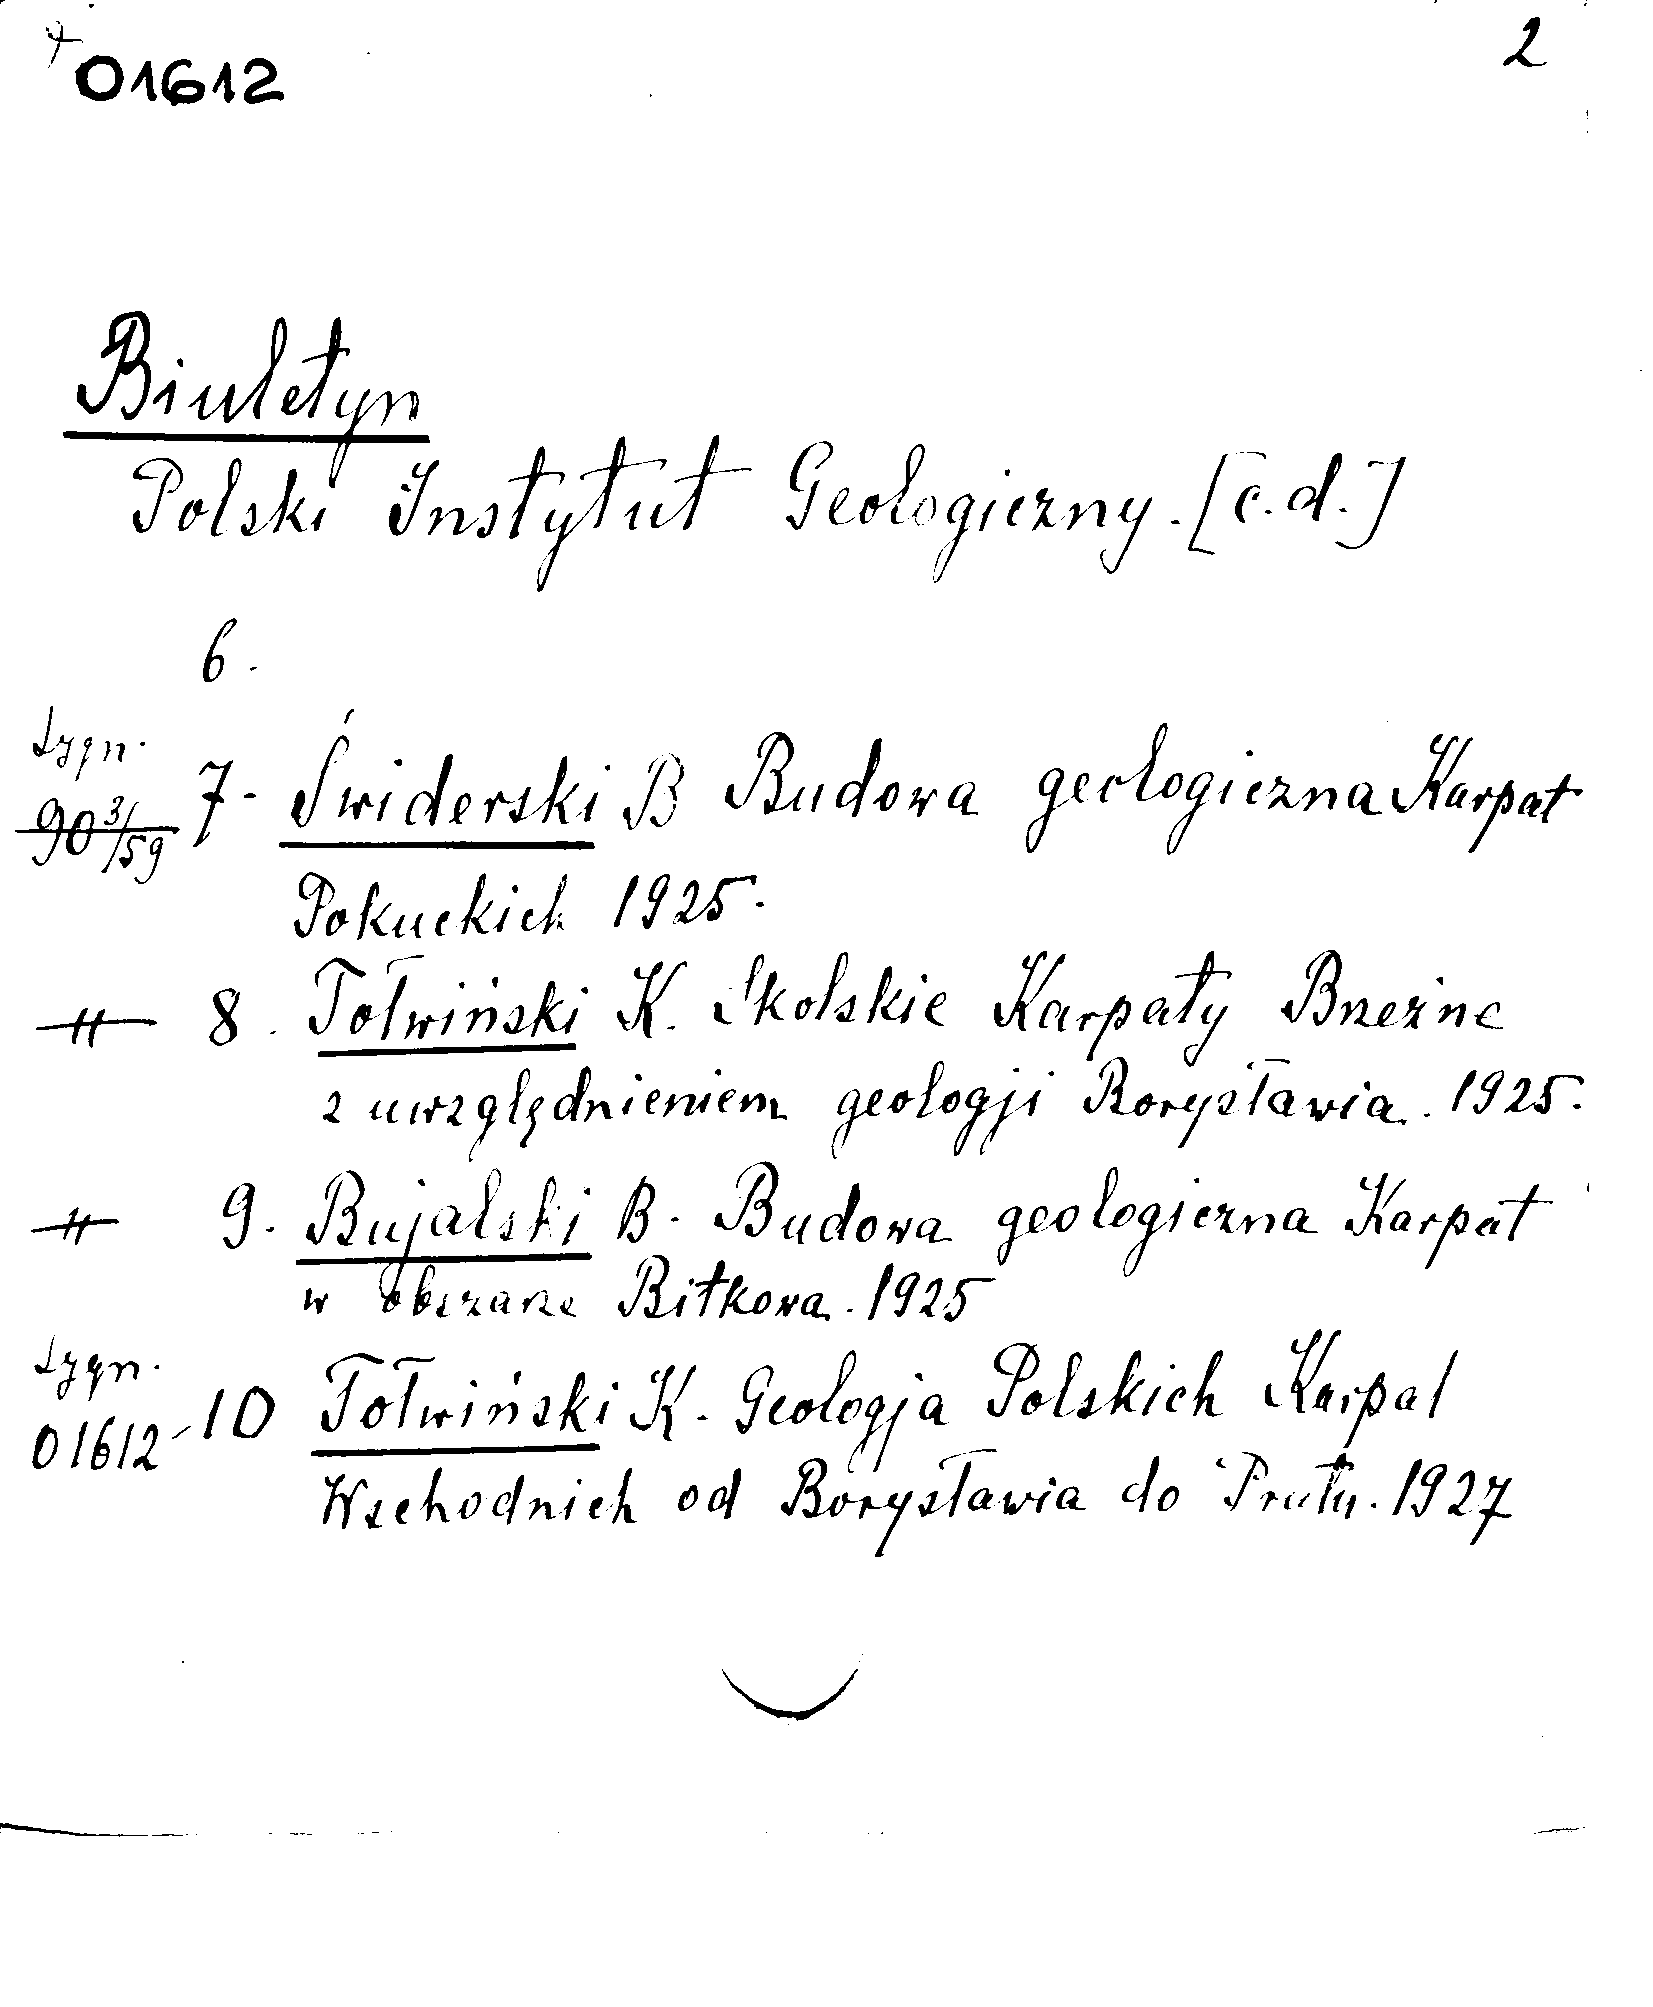 01612
2
Biuletyn
Polski Instytut Geologiczny. [c.d.]
6.
Sygn.
90 3/59
7. Świderski B Budowa geologiczna Karpat
Pokuckich 1925.
-"- 8. Tołwiński K. Skolskie Karpaty Brzeżne
z uwzględnieniem geologji Borysławia. 1925.
-"- 9. Bujalski B. Budowa geologiczna Karpat
w obszarze Bitkowa. 1925
Sygn.
01612 - 10 Tołwiński K. Geologja Polskich Karpat
Wschodnich od Borysławia do Prutu. 1927